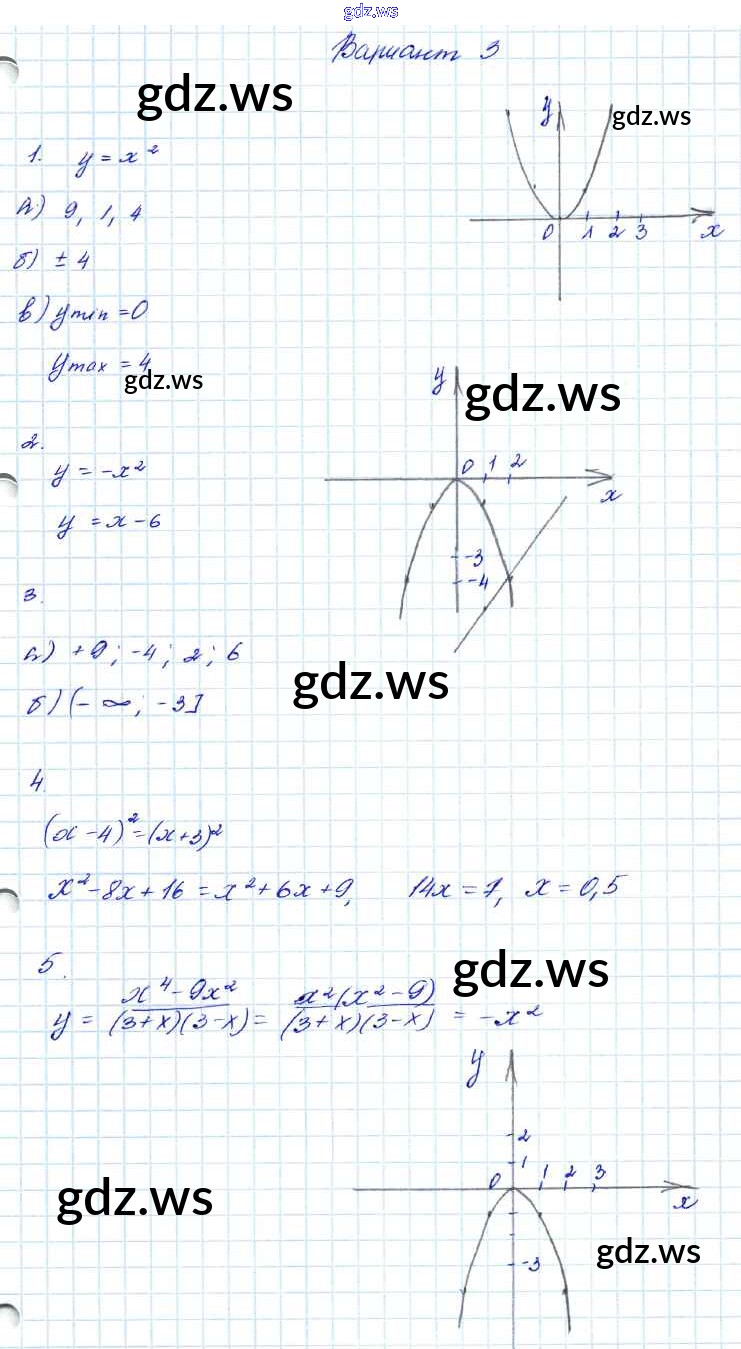 gdz.ws
Вариант 3
gdz.ws
y
gdz.ws
1. y = x²
а) 9, 1, 4
0 1 2 3 x
б) ± 4
в) y min = 0
y max = 4
gdz.ws
y
gdz.ws
2.
y = -x²
0 1 2
x
y = x - 6
-3
-4
3.
а) +9; -4; 2; 6
gdz.ws
б) (- ∞; -3]
4.
(x - 4)² = (x + 3)²
x² - 8x + 16 = x² + 6x + 9, 14x = 7, x = 0,5
5.
gdz.ws
y = x⁴ - 9x² / (3 + x)(3 - x) = x²(x² - 9) / (3 + x)(3 - x) = -x²
y
2
1
0 1 2 3
x
gdz.ws
gdz.ws
-3